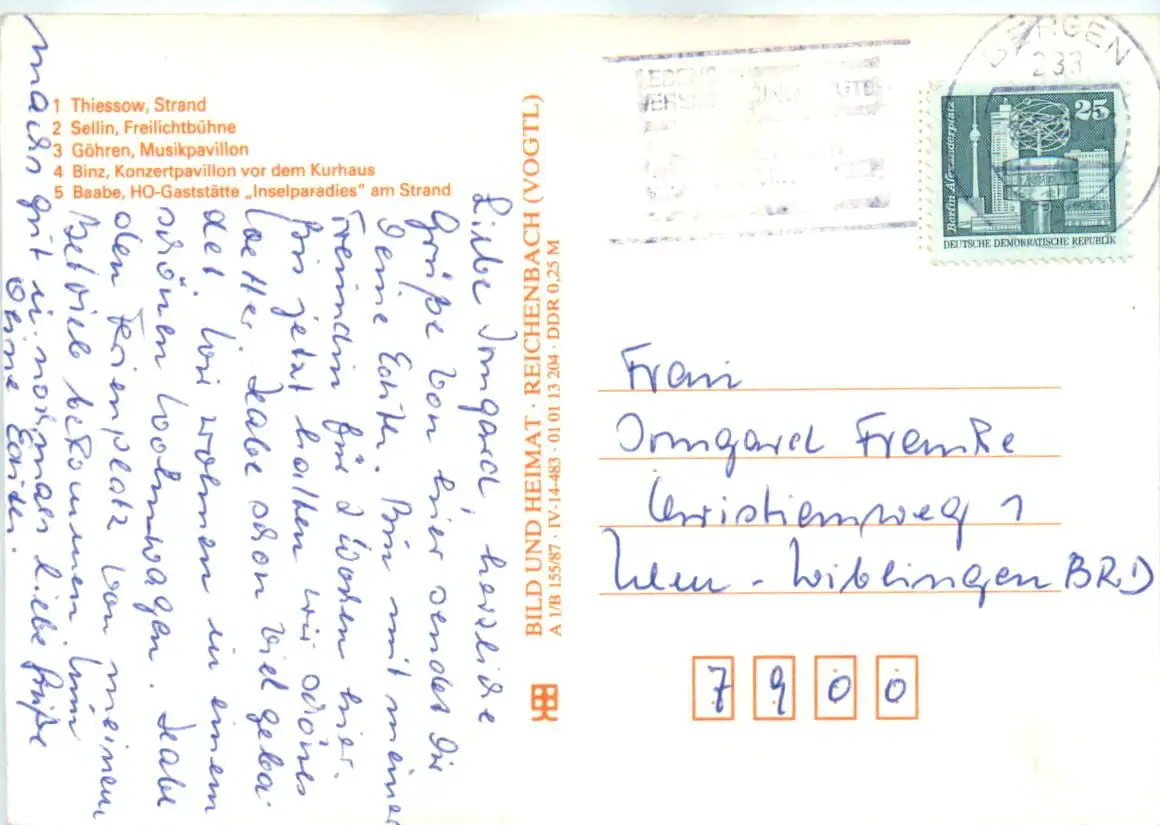 1 Thiessow, Strand
2 Sellin, Freilichtbühne
3 Göhren, Musikpavillon
4 Binz, Konzertpavillon vor dem Kurhaus
5 Baabe, HO-Gaststätte „Inselparadies" am Strand
Liebe Irmgard, herzliche
Grüße von hier sendet Dir
Deine Edith. Bin mit meiner
Freundin für 2 Wochen hier.
Bis jetzt hatten wir schönes
Wetter. Habe schon viel geba-
det. Wir wohnen in einem
schönen Wohnwagen. Habe
den Ferienplatz von meinem
Betrieb bekommen. Nun
machs gut u. nochmals liebe Grüße
Deine Edith.
BILD UND HEIMAT · REICHENBACH (VOGTL)
A 1/B 155/87 · IV-14-483 · 01 01 13 204 · DDR 0,25 M
BERGEN
233
25
Berlin, Alexanderplatz
DEUTSCHE DEMOKRATISCHE REPUBLIK
Frau
Irmgard Franke
Christianweg 1
Ulm - Wiblingen BRD
7900